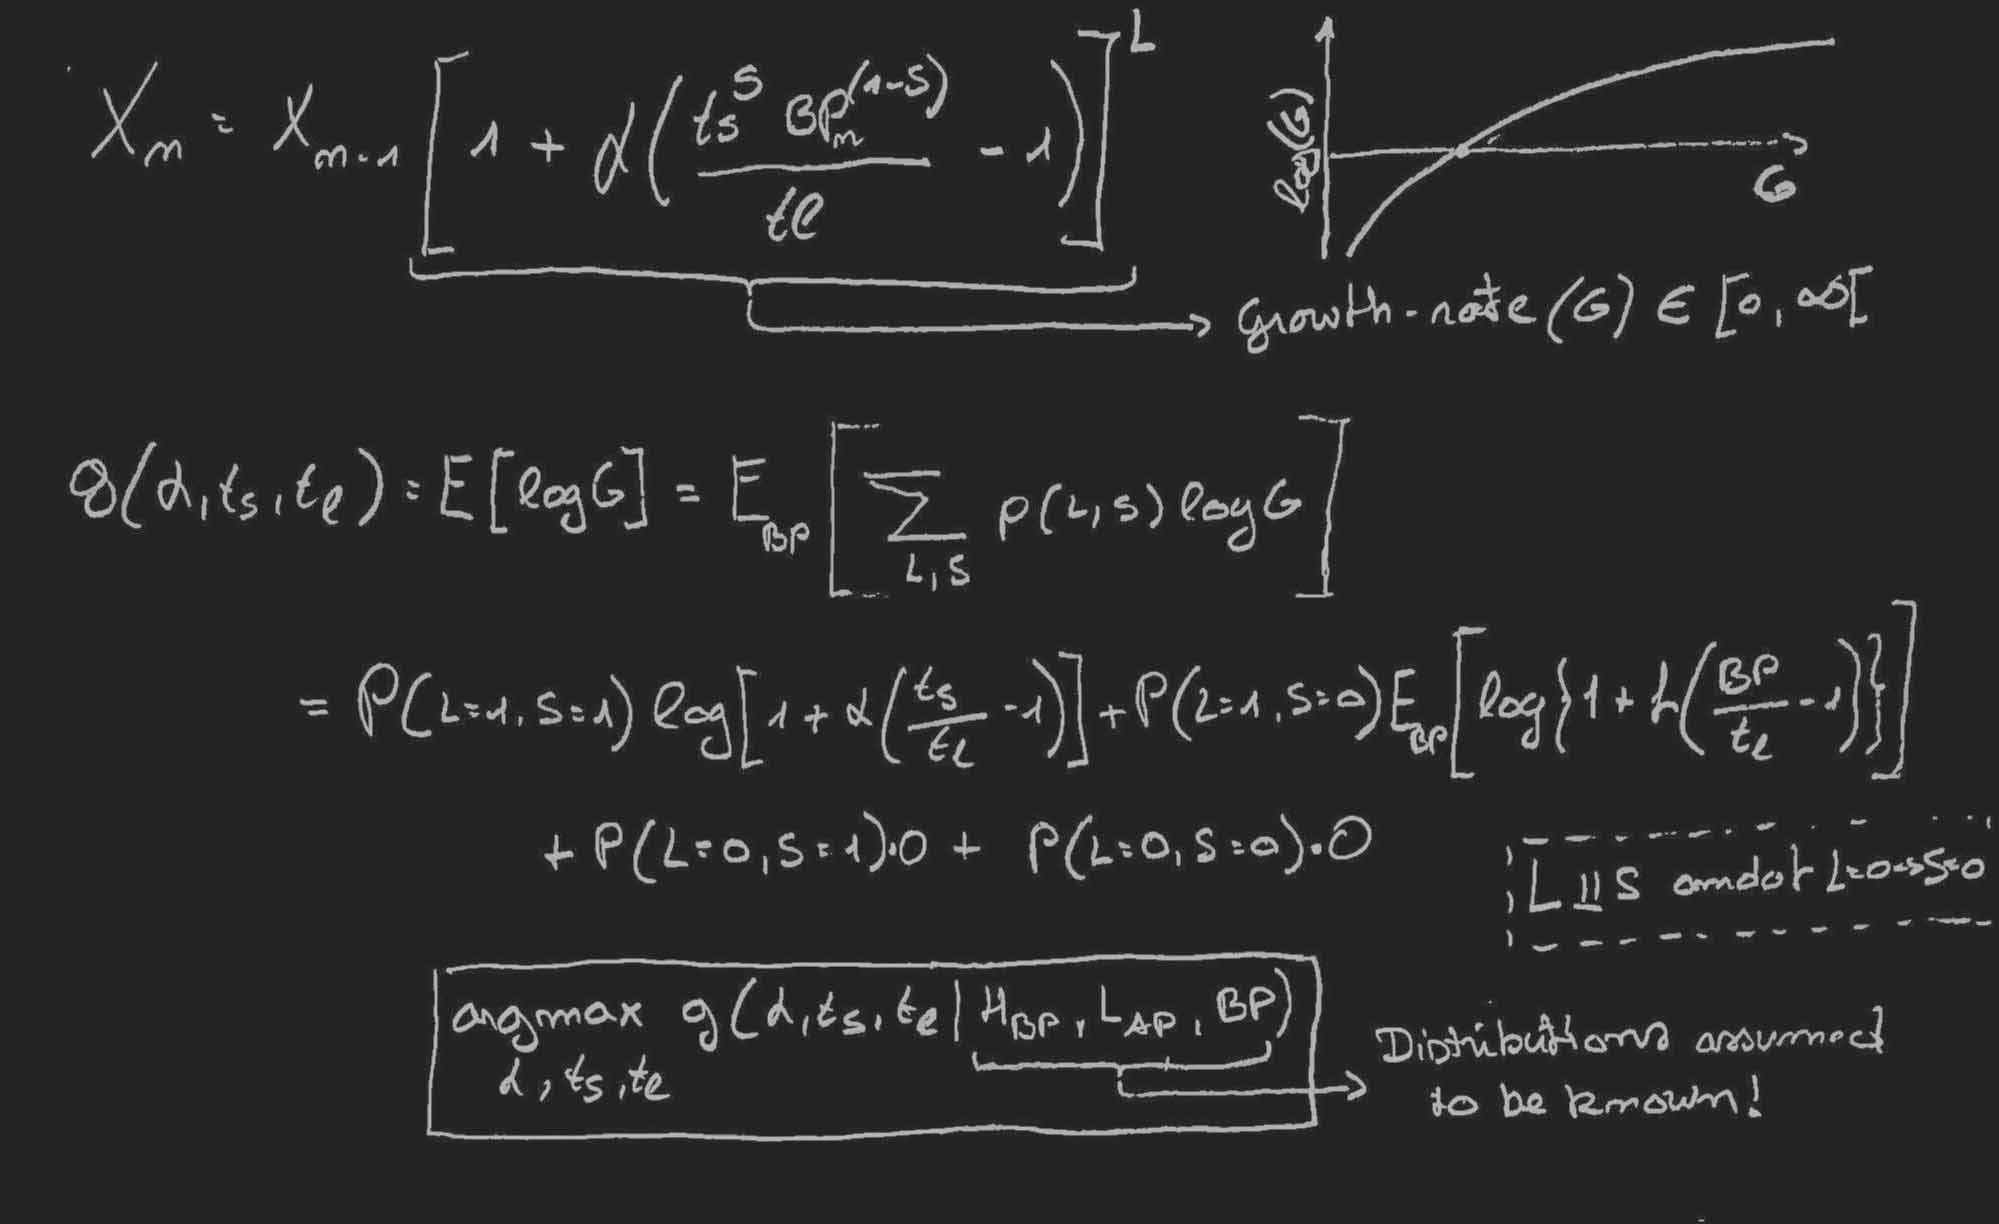 X_n = X_{n-1} [ 1 + α ( t_s^S BP_n^{(1-S)} / t_l - 1 ) ]^L
log(G)
G
Growth-rate (G) ∈ [0, ∞[
g(α, t_s, t_l) = E[log G] = E_{BP} [ Σ_{L,S} P(L,S) log G ]
= P(L=1, S=1) log[ 1 + α ( t_s / t_l - 1 ) ] + P(L=1, S=0) E_{BP} [ log{ 1 + α ( BP / t_l - 1 ) } ]
+ P(L=0, S=1)·0 + P(L=0, S=0)·0
L ⫫ S and L=0→S=0
argmax g(α, t_s, t_l | H_{BP}, L_{AP}, BP)
α, t_s, t_l
Distributions assumed
to be known!